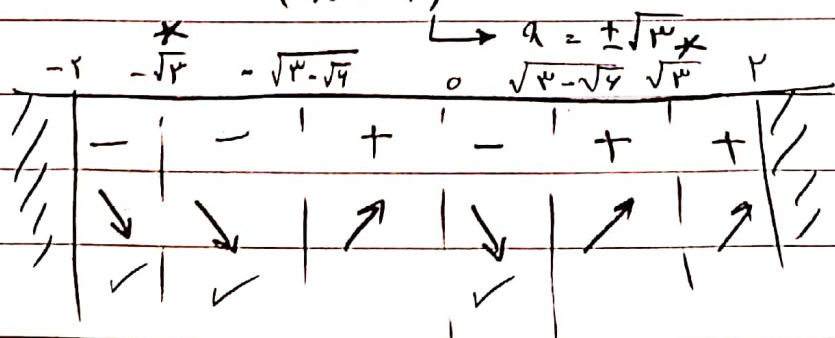 x = ±√۳
* *
-۲ -√۳ -√۳-√۶ ۰ √۳-√۶ √۳ ۲
- - + - + +
↘ ↘ ↗ ↘ ↗ ↗
✓ ✓ ✓